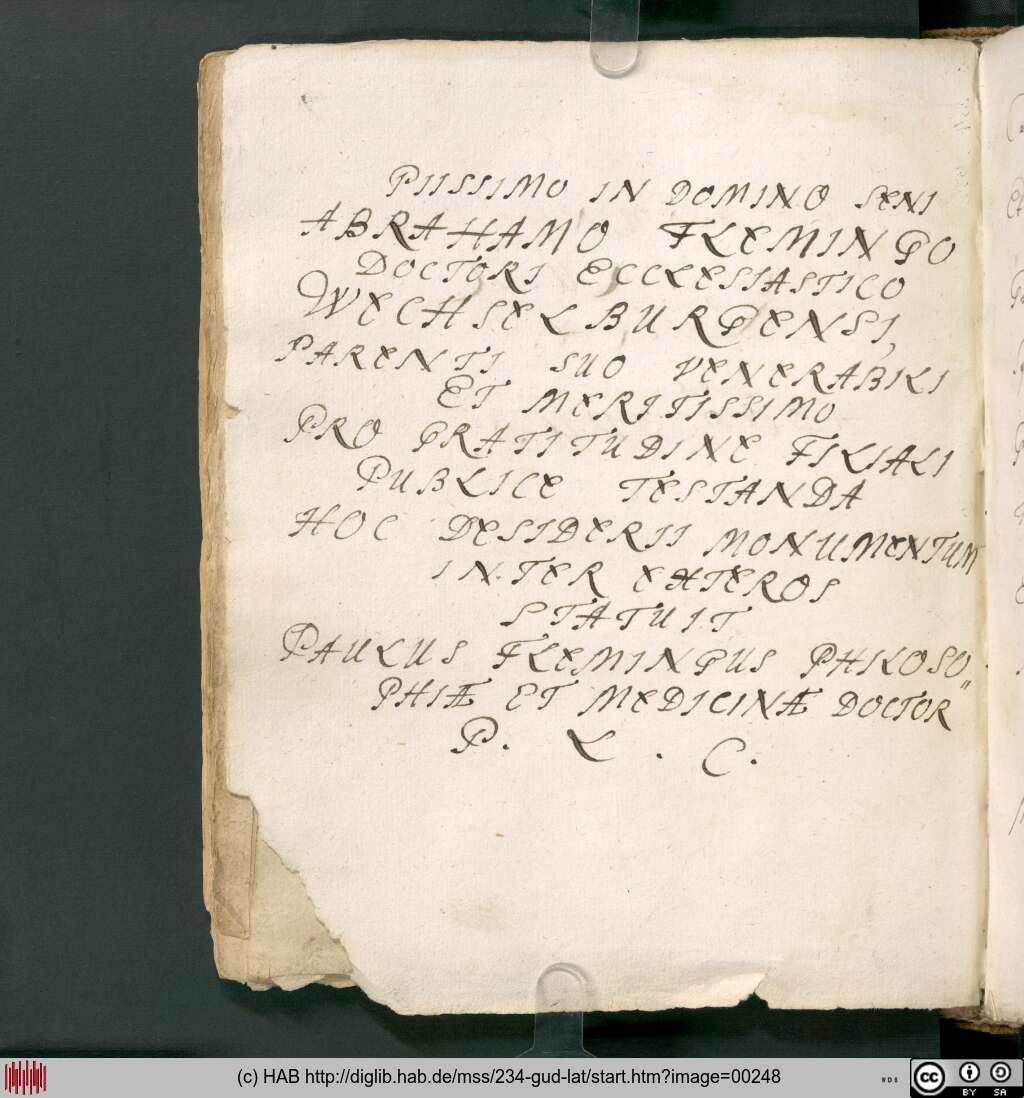 PIISSIMO IN DOMINO SENI
ABRAHAMO FLEMINGO
DOCTORI ECCLESIASTICO
WECHSELBURGENSI,
PARENTI SUO VENERABILI
ET MERITISSIMO
PRO GRATITUDINE FILIALI
PUBLICE TESTANDA
HOC DESIDERII MONUMENTUM
INTER EXTEROS
STATUIT
PAULUS FLEMINGUS PHILOSO„
PHIÆ ET MEDICINÆ DOCTOR
P. L. C.
(c) HAB http://diglib.hab.de/mss/234-gud-lat/start.htm?image=00248
WDB
cc BY SA